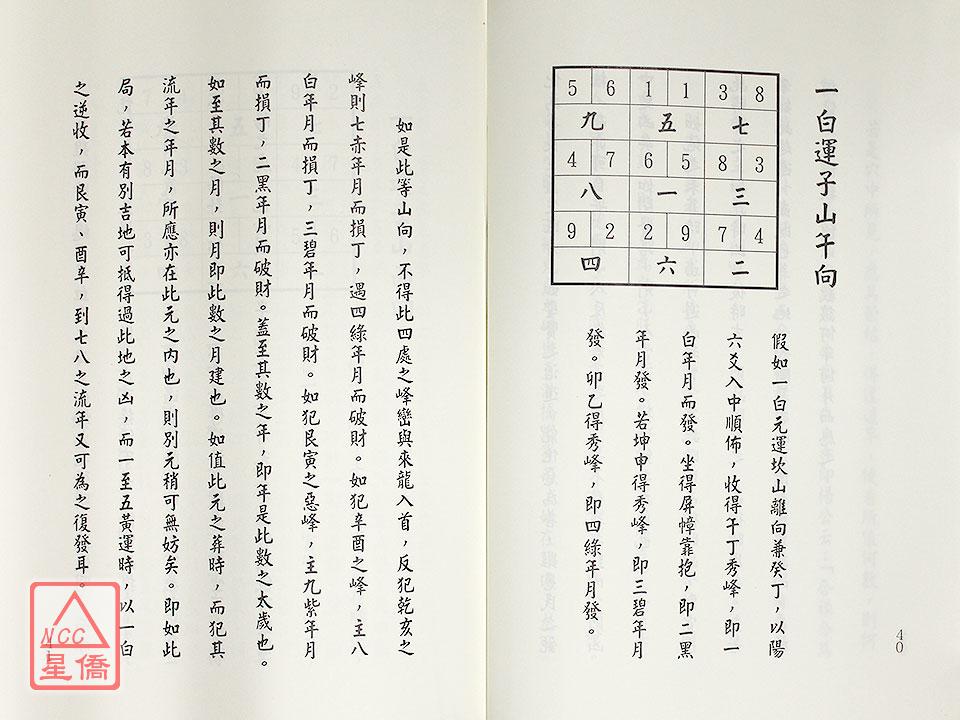 一白運子山午向
5 6 1 1 3 8
九 五 七
4 7 6 5 8 3
八 一 三
9 2 2 9 7 4
四 六 二
假如一白元運坎山離向兼癸丁，以陽
六爻入中順佈，收得午丁秀峰，即一
白年月而發。坐得屏幛靠抱，即二黑
年月發。若坤申得秀峰，即三碧年月
發。卯乙得秀峰，即四綠年月發。
40
如是此等山向，不得此四處之峰巒與來龍入首，反犯乾亥之
峰則七赤年月而損丁，遇四綠年月而破財。如犯辛酉之峰，主八
白年月而損丁，三碧年月而破財。如犯艮寅之惡峰，主九紫年月
而損丁，二黑年月而破財。蓋至其數之年，即年是此數之太歲也。
如至其數之月，則月即此數之月建也。如值此元之葬時，而犯其
流年之年月，所應亦在此元之內也，則別元稍可無妨矣。即如此
局，若本有別吉地可抵得過此地之凶，而一至五黃運時，以一白
之逆收，而艮寅、酉辛，到七八之流年又可為之復發耳。
NCC
星僑